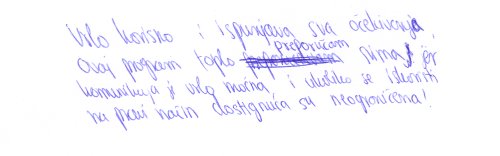 Vrlo korisno i ispunjava sva očekivanja.
Ovaj program toplo preporučam svima jer
komunikacija je vrlo moćna i ukoliko se iskoristi
na pravi način dostignuća su neograničena!